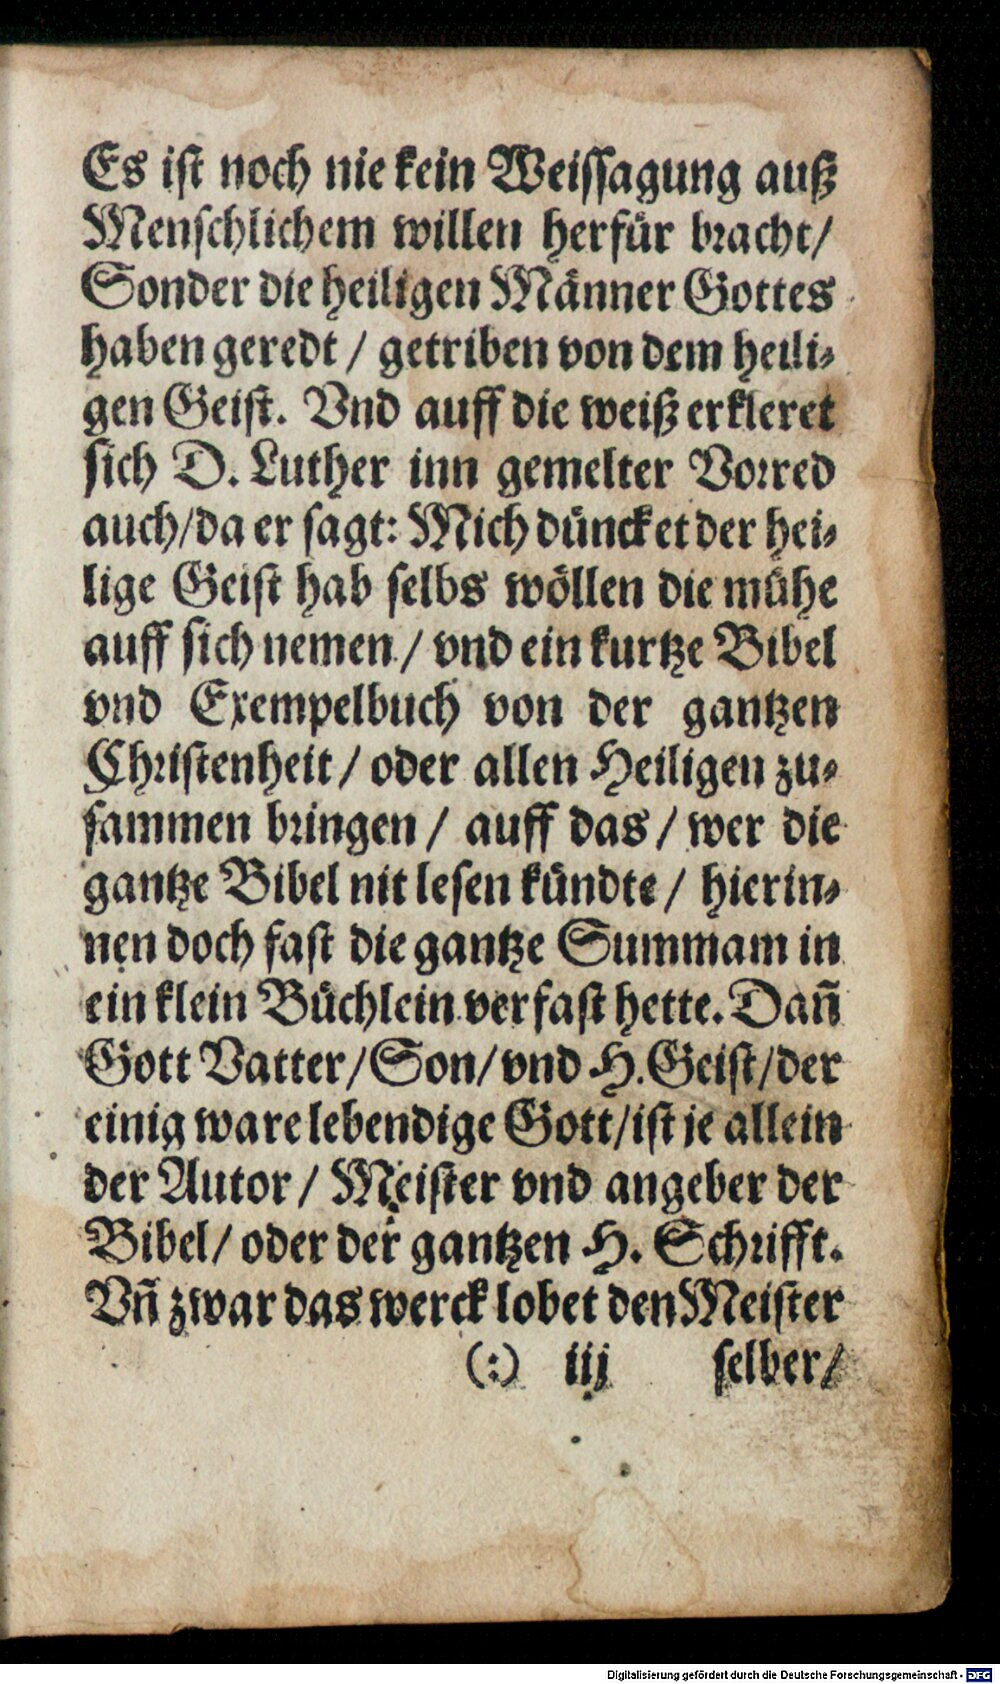 Es ist noch nie kein Weissagung auß
Menschlichem willen herfür bracht/
Sonder die heiligen Männer Gottes
haben geredt / getriben von dem heili-
gen Geist. Vnd auff die weiß erkleret
sich D. Luther inn gemelter Vorred
auch/da er sagt: Mich düncket der hei-
lige Geist hab selbs wöllen die mühe
auff sich nemen / vnd ein kurtze Bibel
vnd Exempelbuch von der gantzen
Christenheit / oder allen Heiligen zu-
sammen bringen / auff das / wer die
gantze Bibel nit lesen kündte / hierin-
nen doch fast die gantze Summam in
ein klein Büchlein verfast hette. Dañ
Gott Vatter/Son/vnd H. Geist/der
einig ware lebendige Gott/ist je allein
der Autor / Meister vnd angeber der
Bibel/ oder der gantzen H. Schrifft.
Vñ zwar das werck lobet den Meister
(:) iij selber/
Digitalisierung gefördert durch die Deutsche Forschungsgemeinschaft - DFG